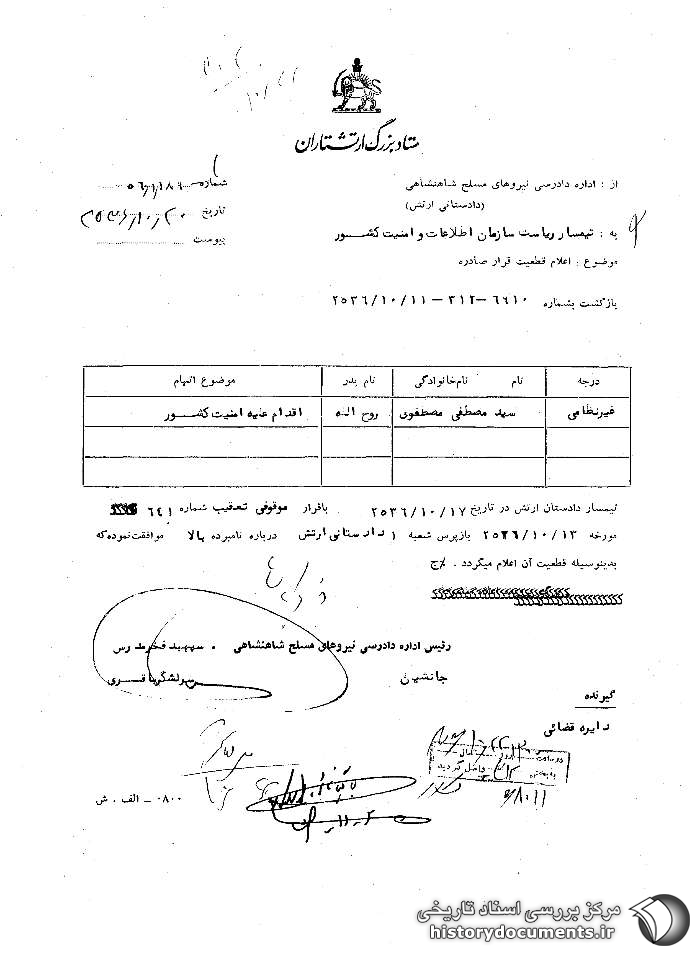 ستاد بزرگ ارتشتاران
از : اداره دادرسی نیروهای مسلح شاهنشاهی
(دادستانی ارتش)
شماره
تاریخ ۲۵۳۶/۱۰/۲۰
پیوست
به : تیمسار ریاست سازمان اطلاعات و امنیت کشور
موضوع : اعلام قطعیت قرار صادره
بازگشت بشماره ۶۶۱۰-۳۱۲-۲۵۳۶/۱۰/۱۱
درجه نام نام‌خانوادگی نام پدر موضوع اتهام
غیرنظامی سید مصطفی مصطفوی روح اله اقدام علیه امنیت کشور
تیمسار دادستان ارتش در تاریخ ۲۵۳۶/۱۰/۱۷ باقرار موقوفی تعقیب شماره ۶۴۱
مورخه ۲۵۳۶/۱۰/۱۳ بازپرس شعبه ۱ دادستانی ارتش درباره نامبرده بالا موافقت نموده که
بدینوسیله قطعیت آن اعلام میگردد .
رئیس اداره دادرسی نیروهای مسلح شاهنشاهی . سپهبد فخرمدرس
جانشین
گیرنده
دایره قضائی
۰۸۰۰ - الف . ش
مرکز بررسی اسناد تاریخی
historydocuments.ir